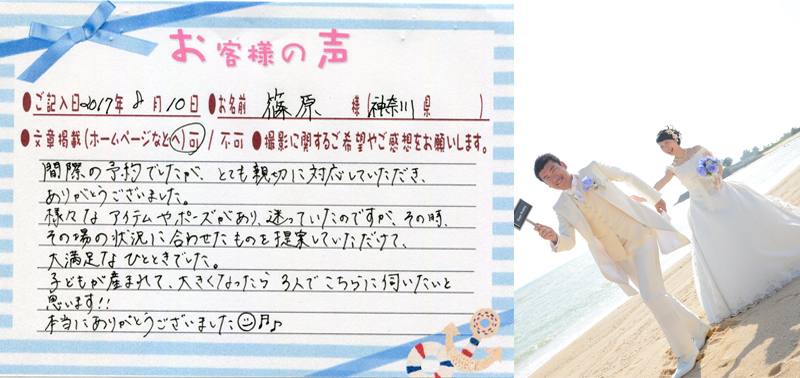 お客様の声
●ご記入日2017年 8月10日 ●お名前 篠原 様(神奈川県 )
●文章掲載(ホームページなどへ)可/不可 ●撮影に関するご希望やご感想をお願いします。
間際の予約でしたが、とても親切に対応していただき、
ありがとうございました。
様々なアイテムやポーズがあり、迷っていたのですが、その時、
その場の状況に合わせたものを提案していただけて、
大満足なひとときでした。
子どもが産まれて、大きくなったら3人でこちらに伺いたいと
思います!!
本当にありがとうございました☺♬♪